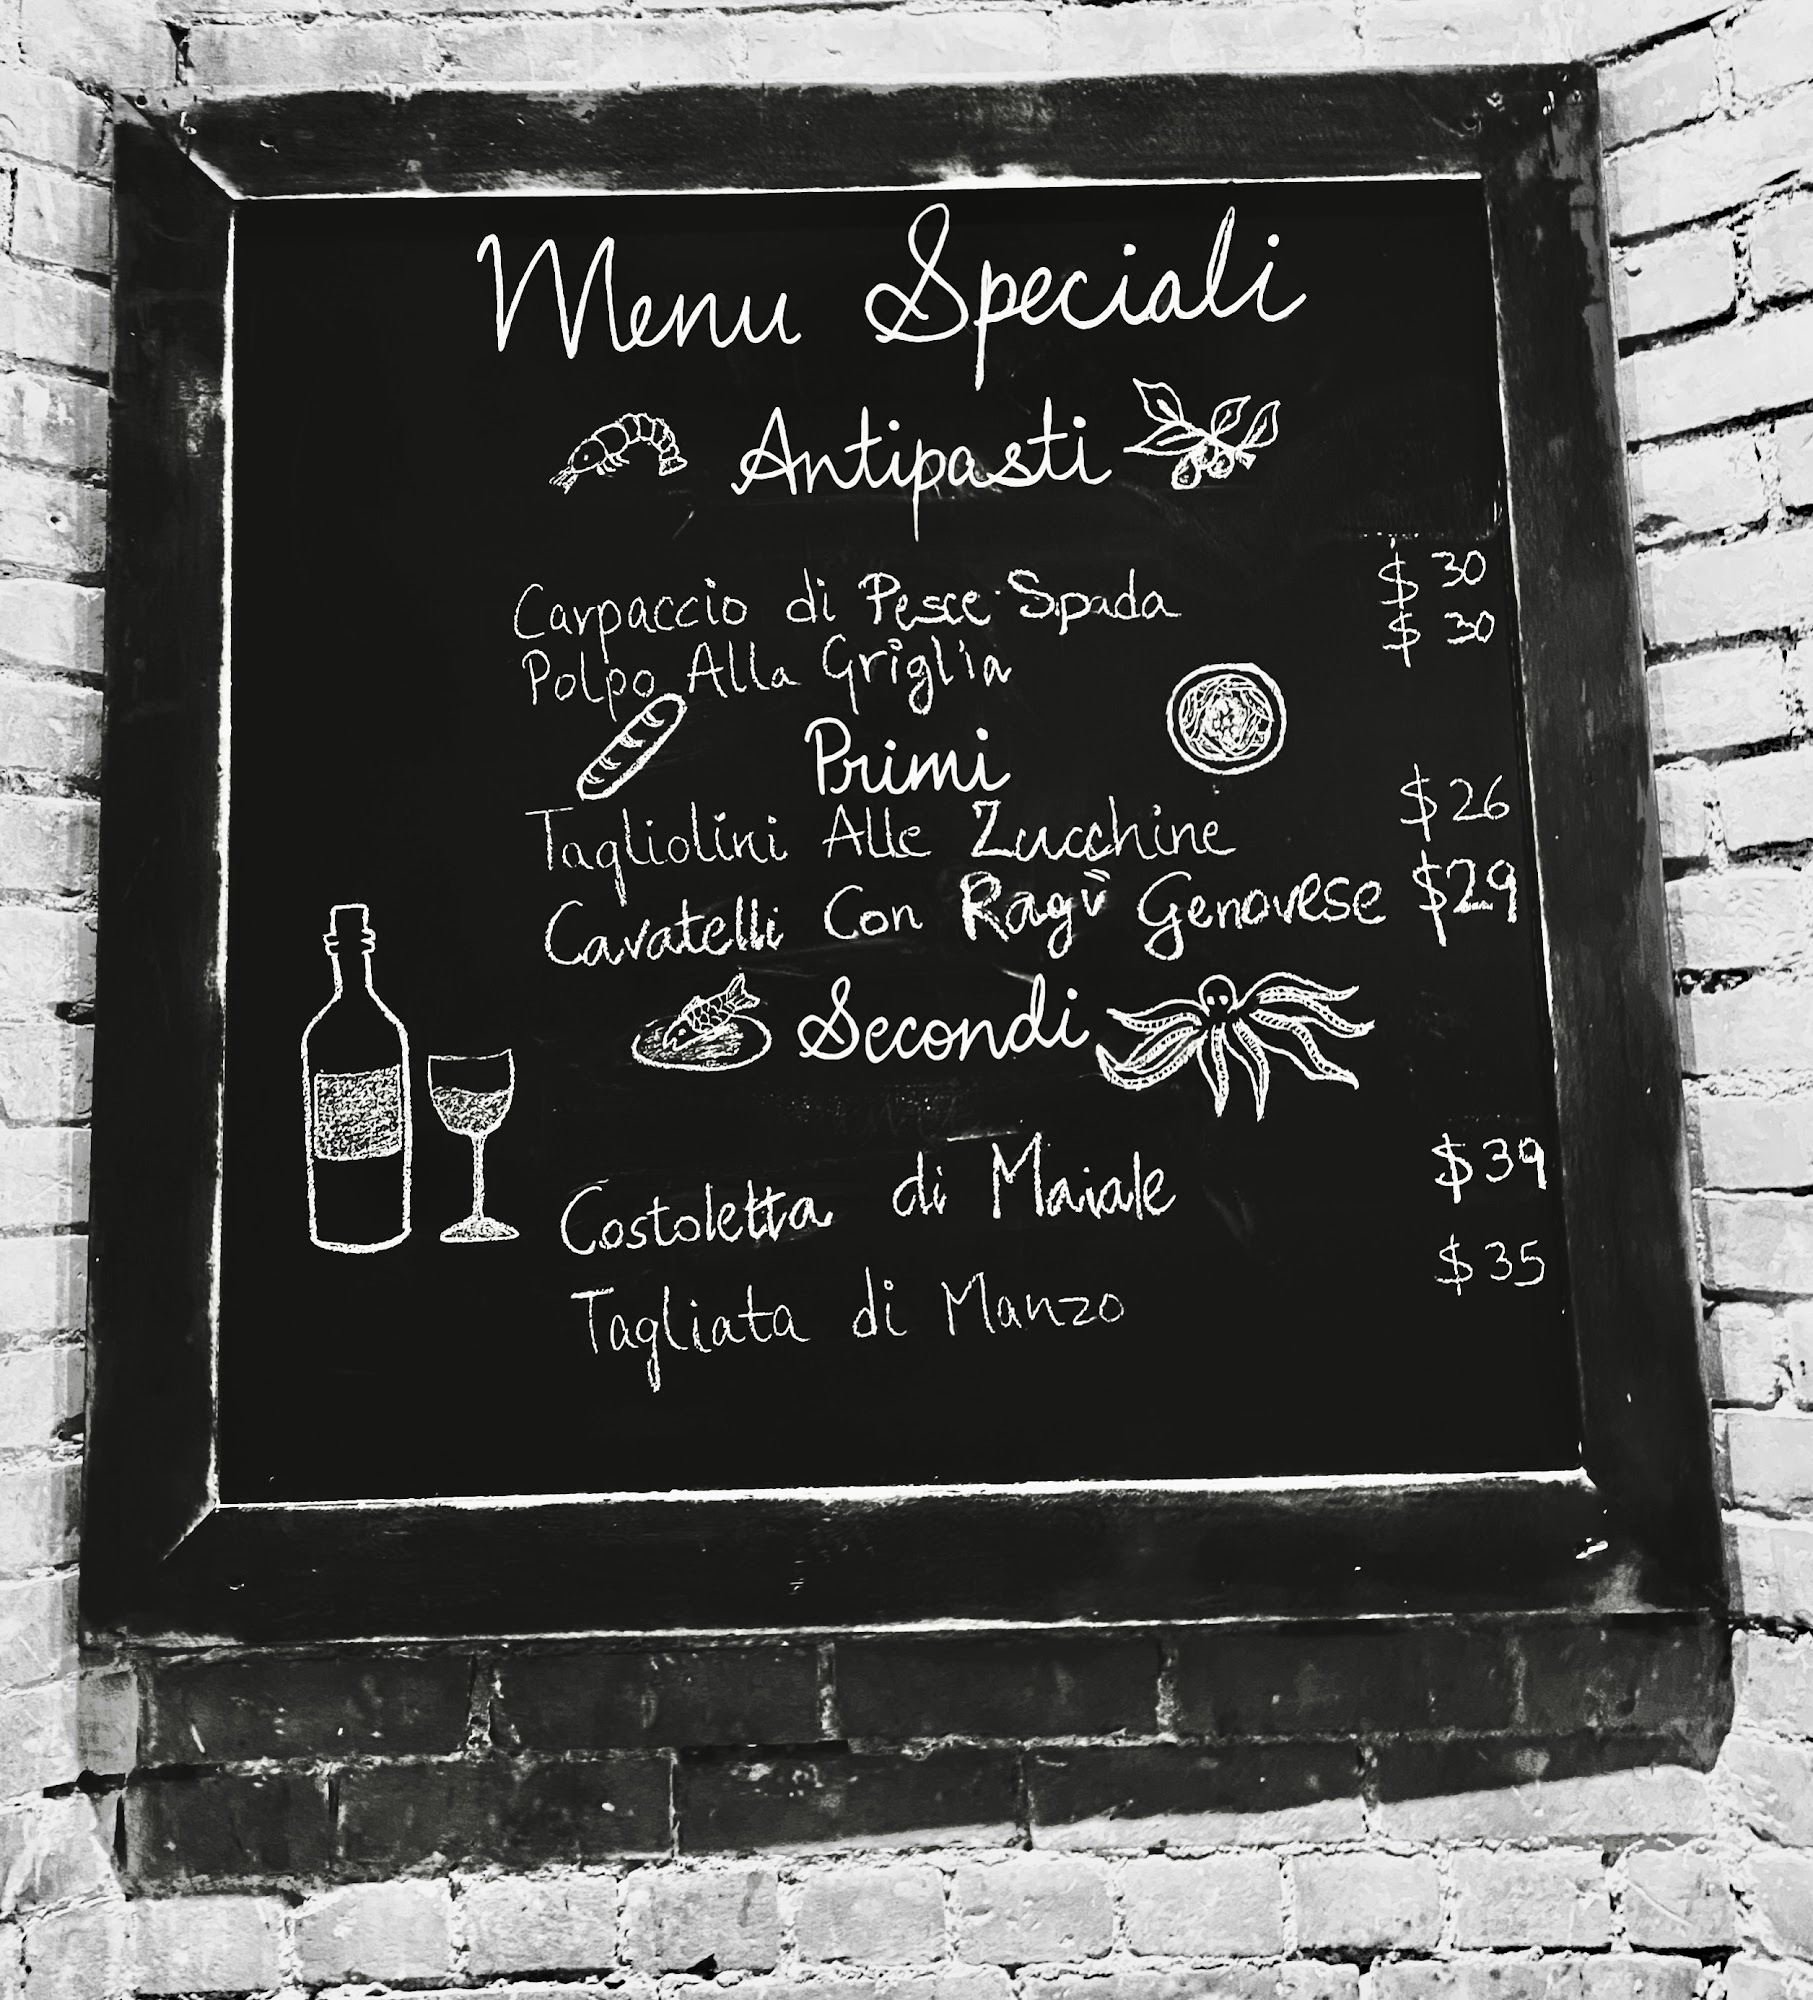 Menu Speciali
Antipasti
Carpaccio di Pesce Spada $30
Polpo Alla Griglia $30
Primi
Tagliolini Alle Zucchine $26
Cavatelli Con Ragù Genovese $29
Secondi
Costoletta di Maiale $39
Tagliata di Manzo $35